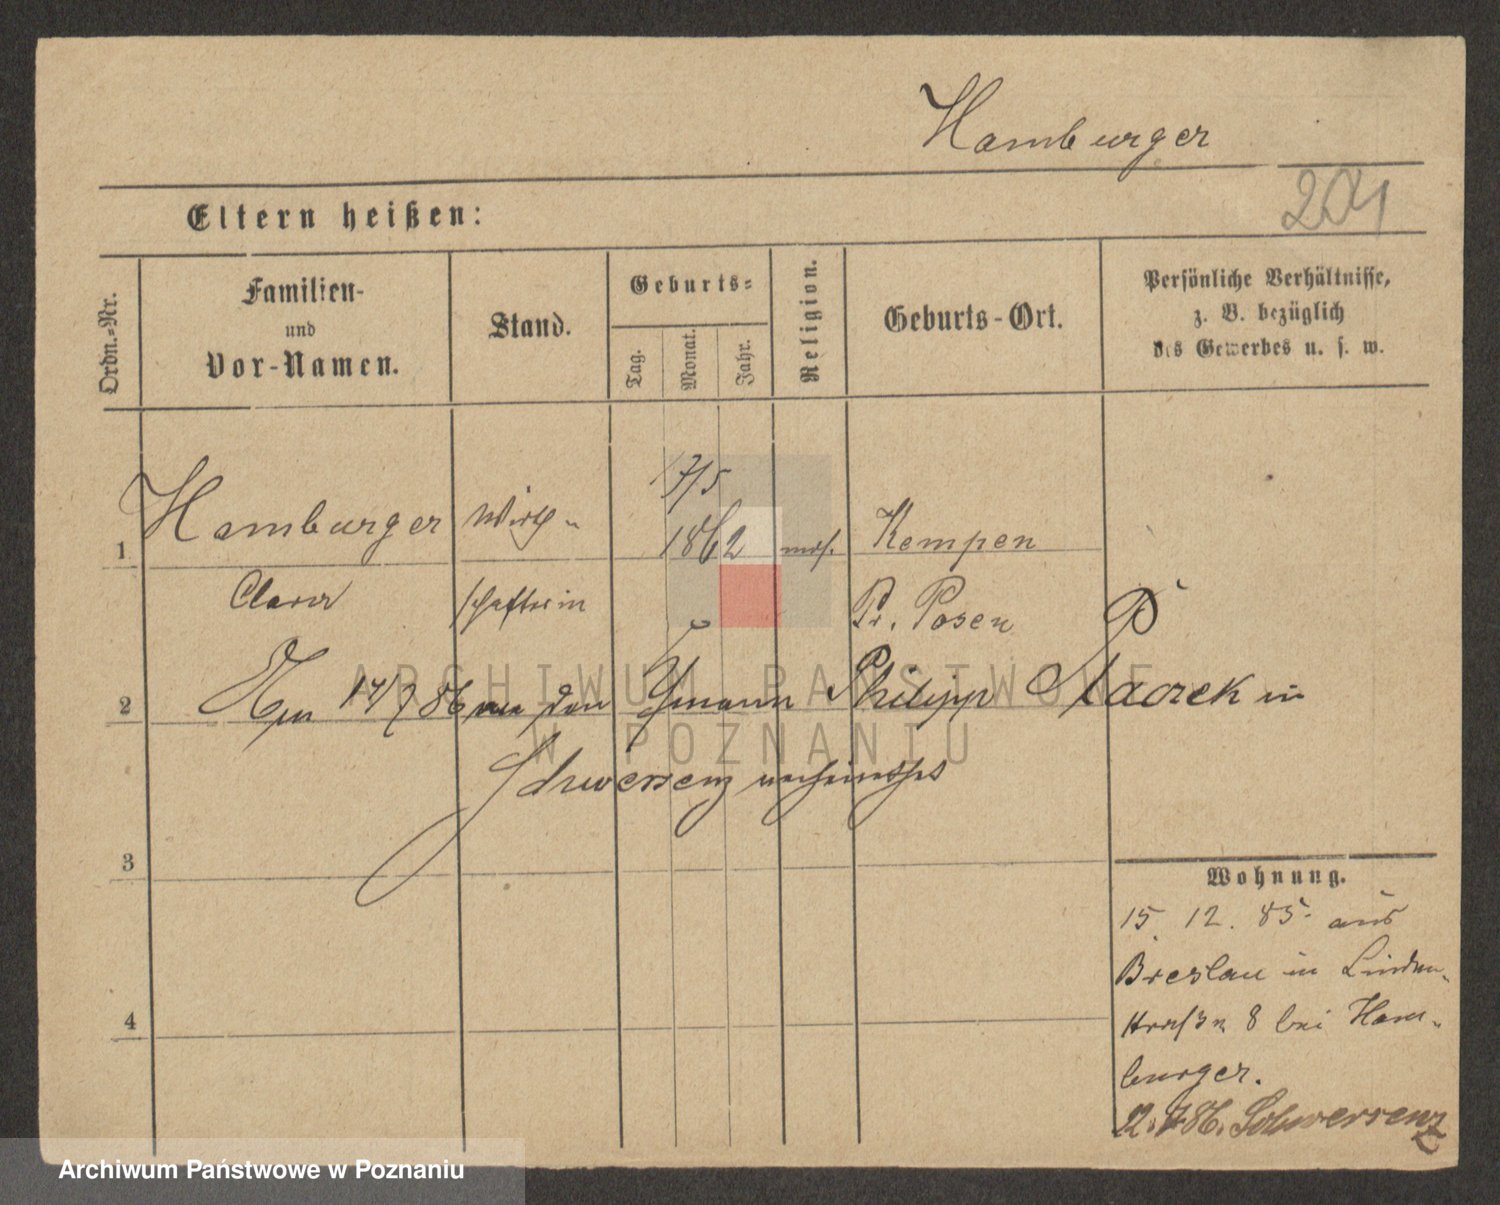 Hamburger
204
Eltern heißen:
Ordn.-Nr.
Familien-
und
Vor-Namen.
Stand.
Geburts-
Tag.
Monat.
Jahr.
Religion.
Geburts-Ort.
Persönliche Verhältnisse,
z. B. bezüglich
des Gewerbes u. s. w.
17/5
1 Hamburger Wirth- 1862 mos. Kempen
Clara schafterin Pr. Posen
2 17/7 86 den Philipp in
Schwersenz
3
Wohnung.
15. 12. 85. aus
Breslau in Linden-
straße 8 bei Ham-
burger.
4
22.7.86. Schwersenz
ARCHIWUM PAŃSTWOWE
W POZNANIU
Archiwum Państwowe w Poznaniu